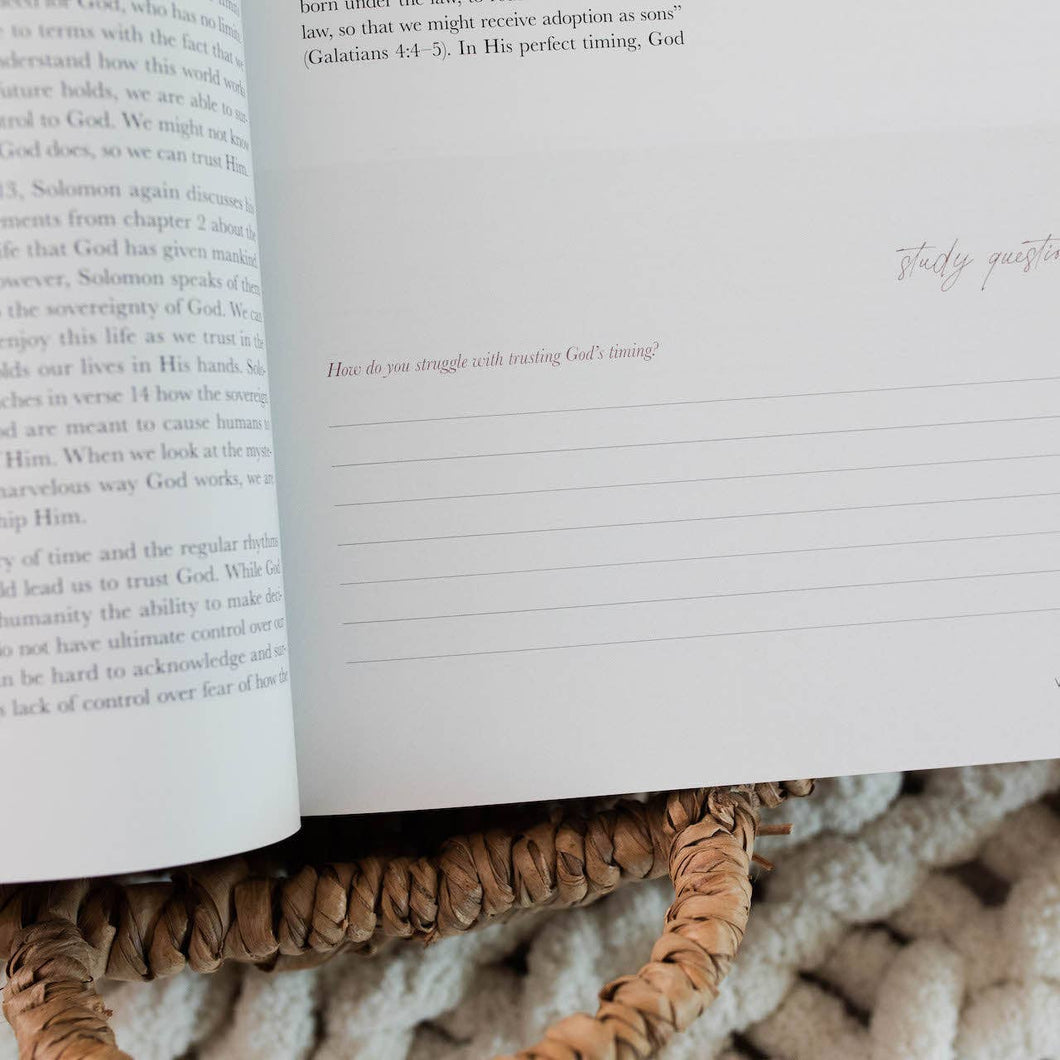 for God, who has no limits,
to terms with the fact that we
understand how this world works
future holds, we are able to sur-
control to God. We might not know
God does, so we can trust Him.
13, Solomon again discusses his
ments from chapter 2 about the
life that God has given mankind
owever, Solomon speaks of them
the sovereignty of God. We can
enjoy this life as we trust in the
olds our lives in His hands. Solo-
ches in verse 14 how the sovereign
are meant to cause humans to
Him. When we look at the myste-
marvelous way God works, we are
ship Him.
ry of time and the regular rhythms
ld lead us to trust God. While God
humanity the ability to make deci-
do not have ultimate control over our
n be hard to acknowledge and sur-
s lack of control over fear of how the
born under the law, to
law, so that we might receive adoption as sons”
(Galatians 4:4–5). In His perfect timing, God
study question
How do you struggle with trusting God’s timing?